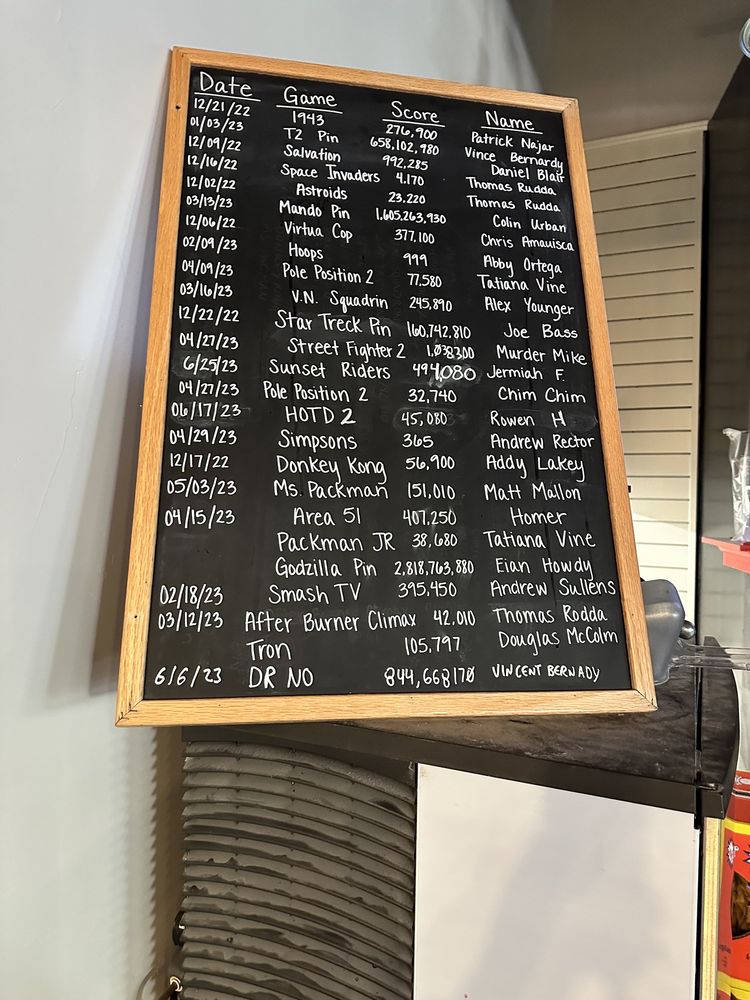 Date Game Score Name
12/21/22 1943 276,900 Patrick Najar
01/03/23 T2 Pin 658,102,980 Vince Bernardy
12/09/22 Salvation 992,285 Daniel Blair
12/16/22 Space Invaders 4.170 Thomas Rudda
12/02/22 Astroids 23.220 Thomas Rudda
03/13/23 Mando Pin 1.605,263,930 Colin Urban
12/06/22 Virtua Cop 377,100 Chris Amauisca
02/09/23 Hoops 999 Abby Ortega
04/09/23 Pole Position 2 77.580 Tatiana Vine
03/16/23 V.N. Squadrin 245,890 Alex Younger
12/22/22 Star Treck Pin 160,742,810 Joe Bass
04/27/23 Street Fighter 2 1.038300 Murder Mike
6/25/23 Sunset Riders 494,080 Jermiah F.
04/27/23 Pole Position 2 32,740 Chim Chim
06/17/23 HOTD 2 45,080 Rowen H
04/29/23 Simpsons 365 Andrew Rector
12/17/22 Donkey Kong 56,900 Addy Lakey
05/03/23 Ms. Packman 151,010 Matt Mallon
04/15/23 Area 51 407,250 Homer
Packman JR 38,680 Tatiana Vine
Godzilla Pin 2,818,763,880 Eian Howdy
02/18/23 Smash TV 395,450 Andrew Sullens
03/12/23 After Burner Climax 42,010 Thomas Rodda
Tron 105,797 Douglas McColm
6/6/23 DR NO 844,668170 VINCENT BERNADY